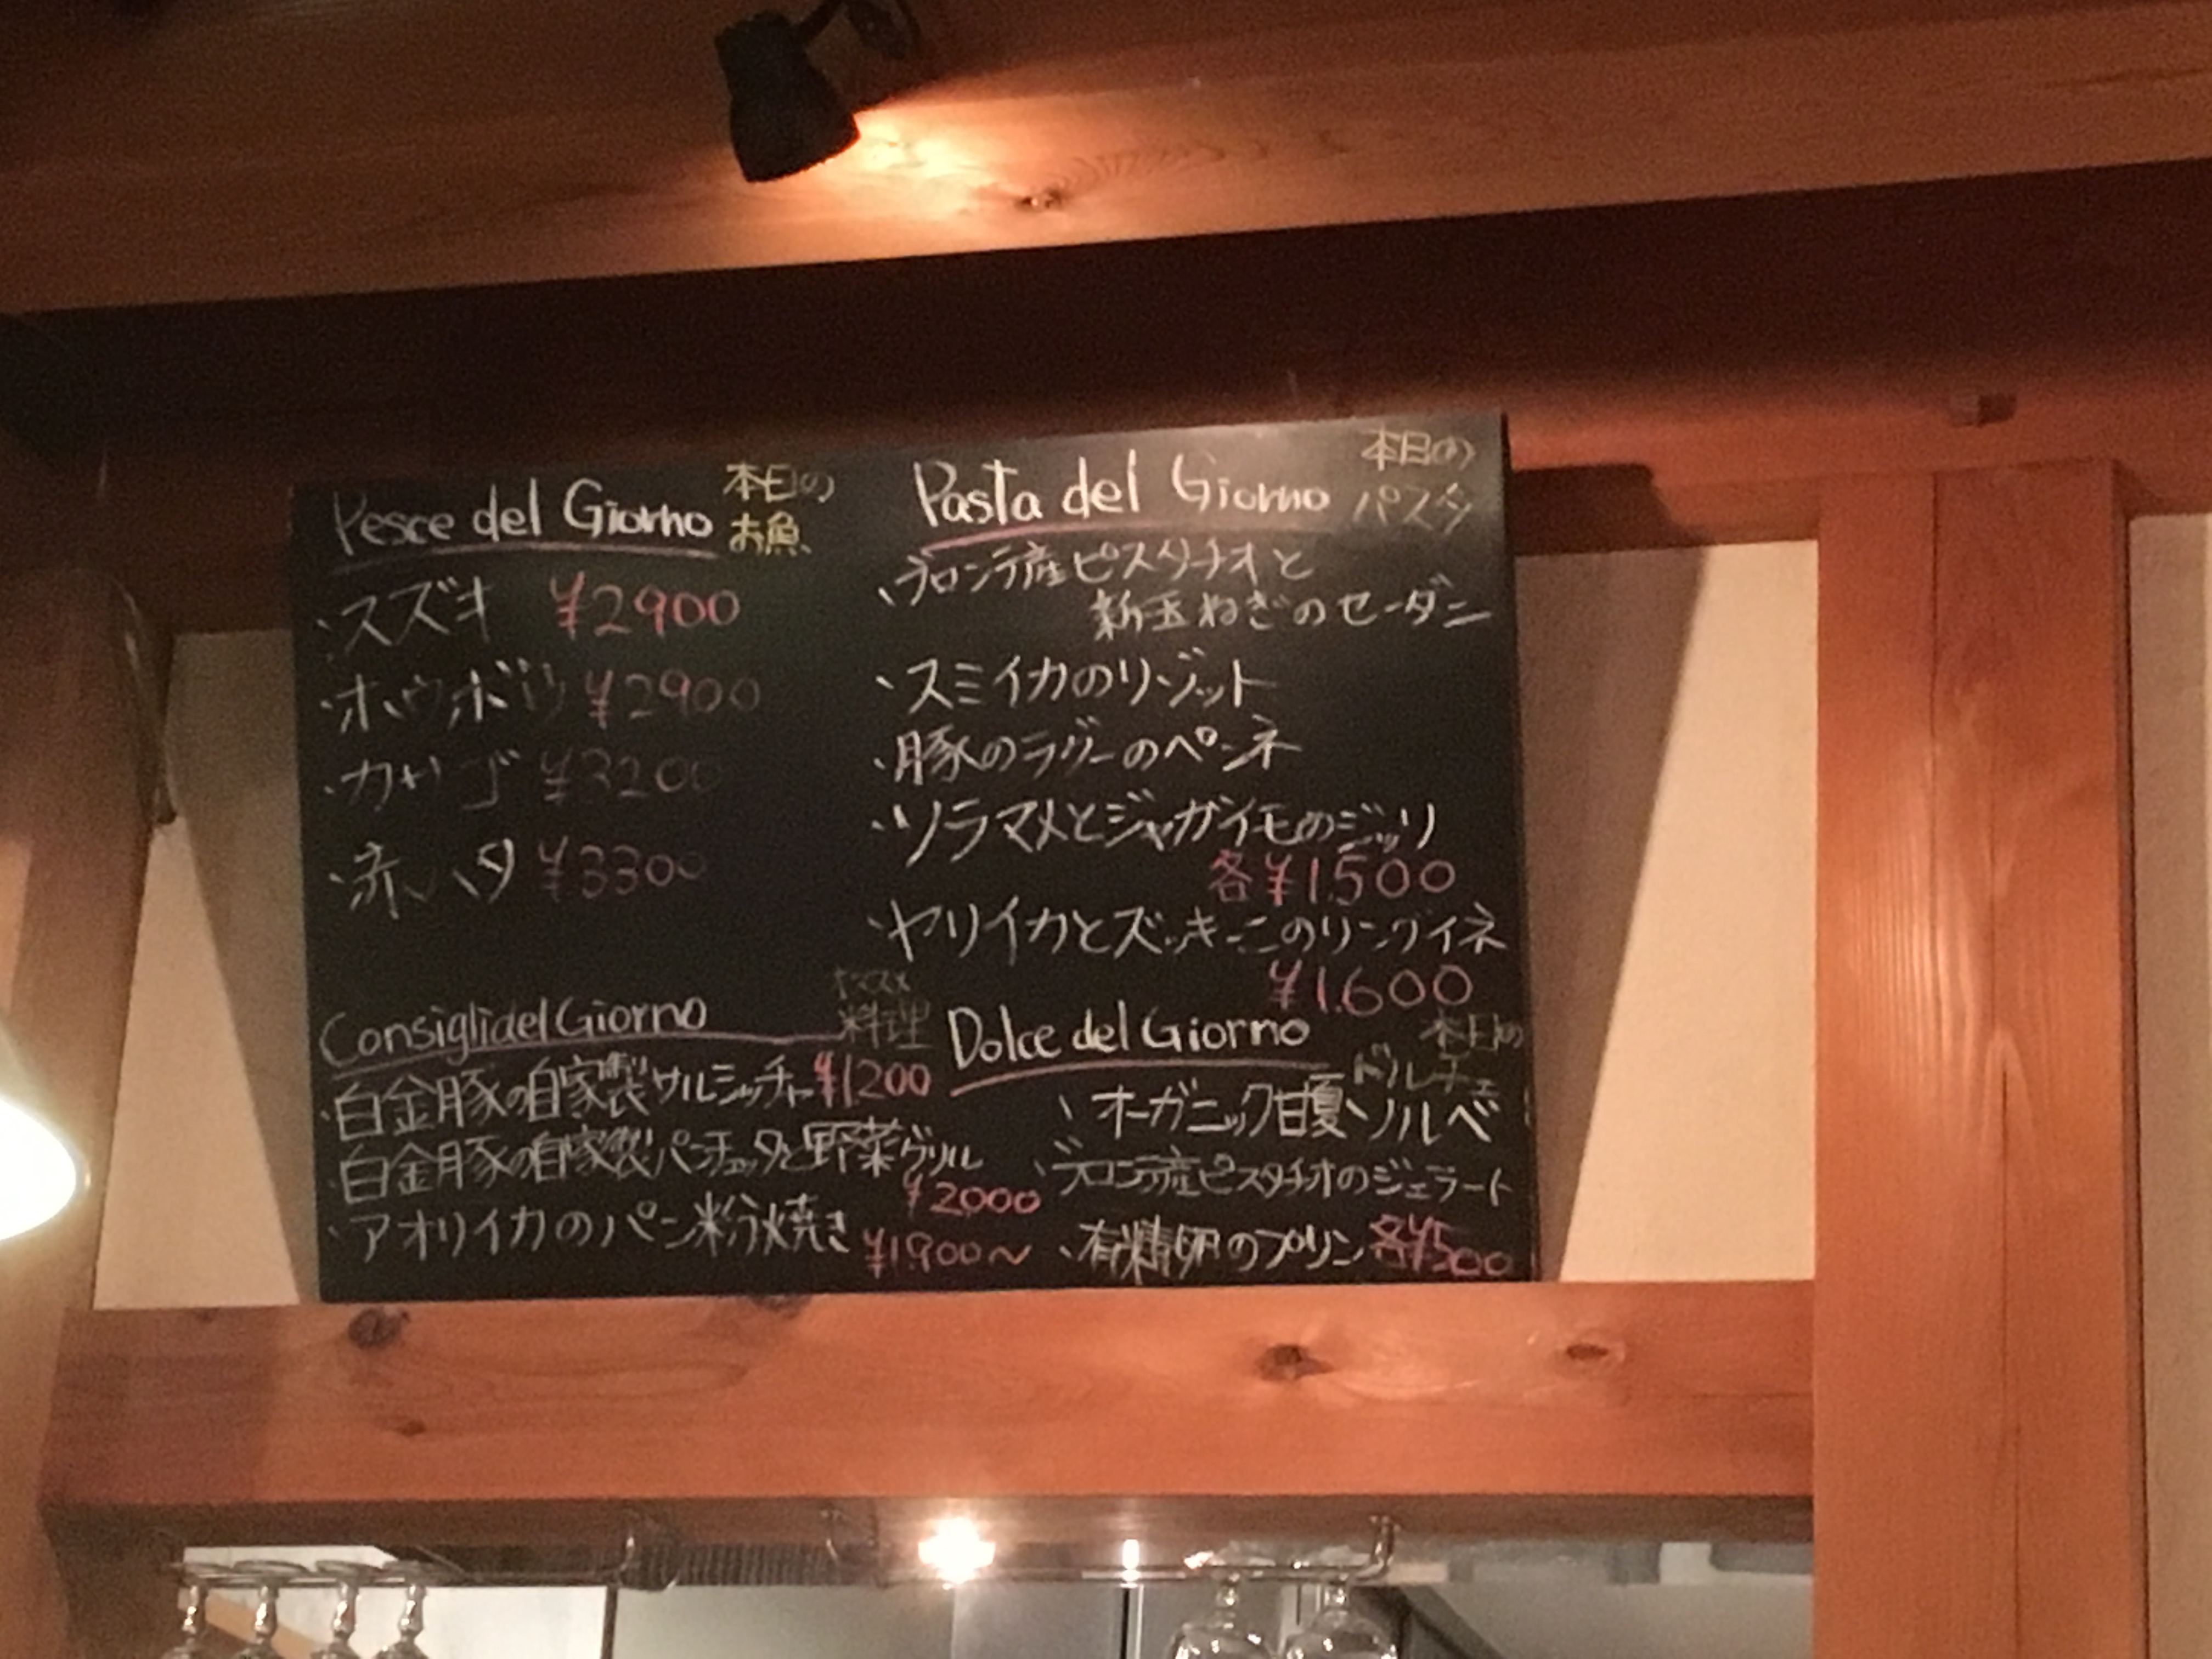 Pesce del Giorno 本日の
お魚
・スズキ ¥2900
・ホウボウ ¥2900
・カサゴ ¥3200
・赤ハタ ¥3300
Consigli del Giorno オススメ
料理
・白金豚の自家製サルシッチャ ¥1,200
・白金豚の自家製パンチェッタと野菜グリル
¥2000
・アオリイカのパン粉焼き ¥1,900〜
Pasta del Giorno 本日の
パスタ
・ブロンテ産ピスタチオと
新玉ねぎのセーダニ
・スミイカのリゾット
・豚のラグーのペンネ
・ソラマメとジャガイモのジッリ
各¥1,500
・ヤリイカとズッキーニのリングイネ
¥1,600
Dolce del Giorno 本日の
ドルチェ
・オーガニック甘夏ソルベ
・ブロンテ産ピスタチオのジェラート
・有精卵のプリン 各¥500